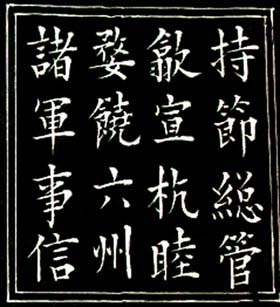 持節總管
歙宣杭睦
婺饒六州
諸軍事信